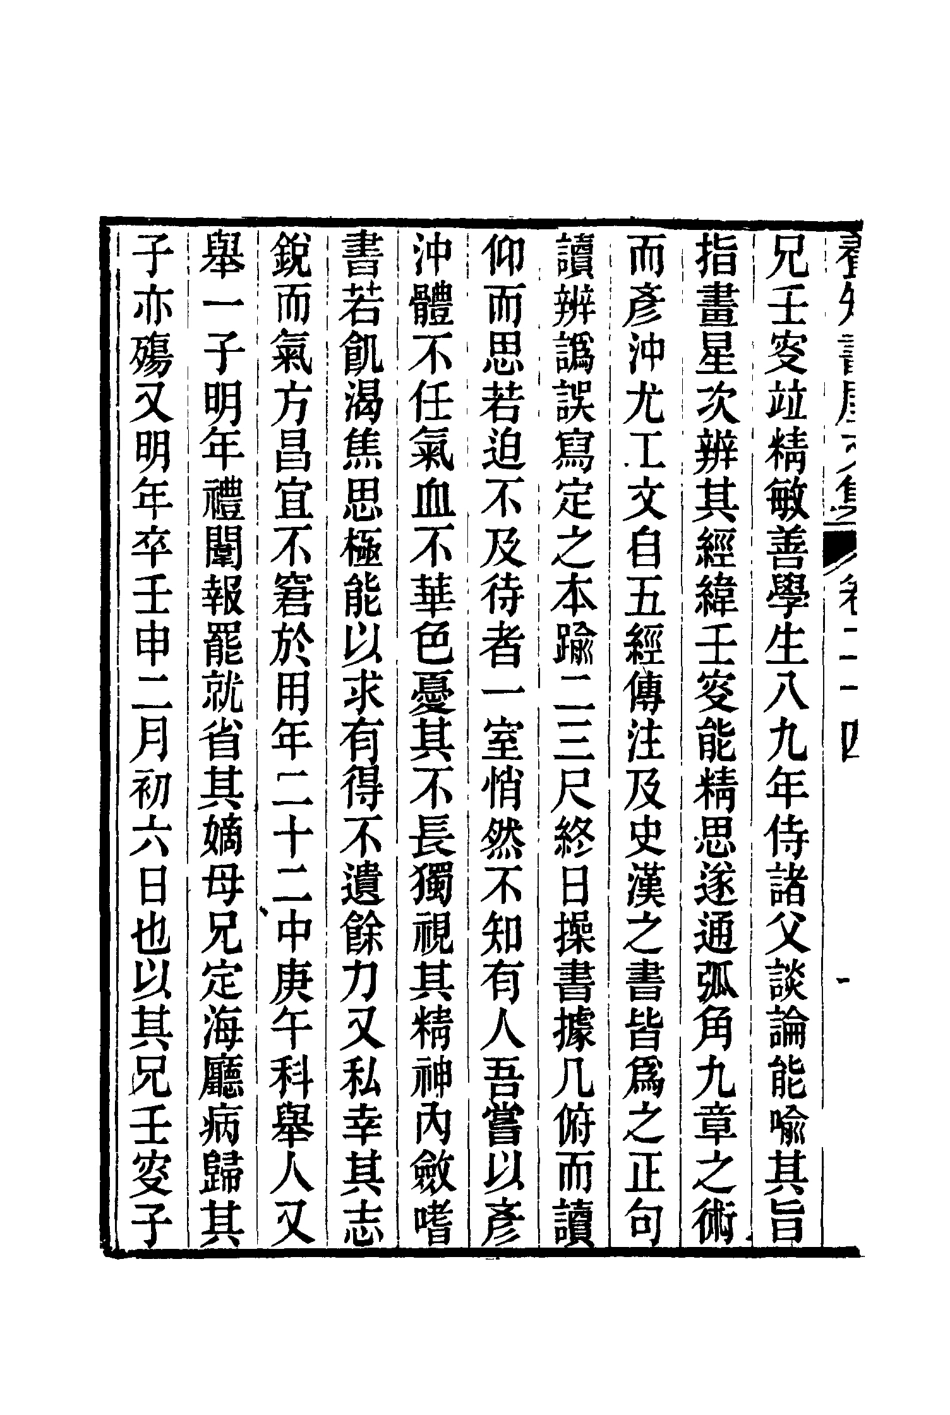 養知書屋文集 卷二十四 一
兄壬㚇竝精敏善學生八九年侍諸父談論能喻其旨
指畫星次辨其經緯壬㚇能精思遂通弧角九章之術
而彥沖尤工文自五經傳注及史漢之書皆爲之正句
讀辨譌誤寫定之本踰二三尺終日操書據几俯而讀
仰而思若迫不及待者一室悄然不知有人吾嘗以彥
沖體不任氣血不華色憂其不長獨視其精神內斂嗜
書若飢渴焦思極能以求有得不遺餘力又私幸其志
銳而氣方昌宜不窘於用年二十二中庚午科舉人又
舉一子明年禮闈報罷就省其嫡母兄定海廳病歸其
子亦殤又明年卒壬申二月初六日也以其兄壬㚇子